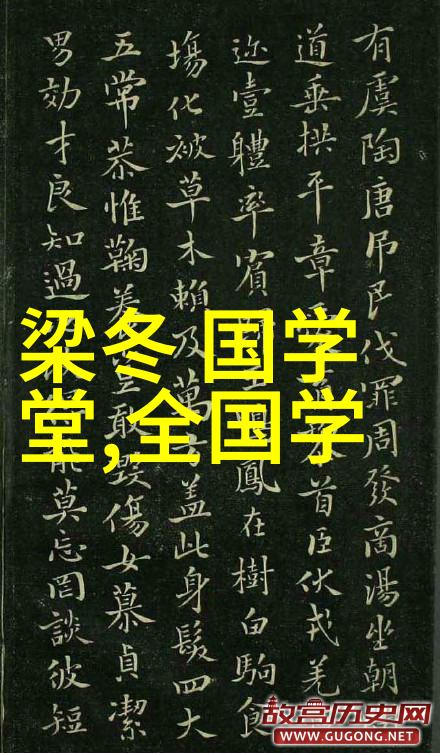 有虞陶唐吊民伐罪周發商湯坐朝
道垂拱平章首臣伏戎羌
迩壹體率賓鳳在樹白駒食
場化被草木賴及萬蓋此身髮四大
五常恭惟鞠養豈敢毀傷女慕貞潔
男効才良知過莫忘罔談彼短
梁冬 国学
堂,全国学
故宫历史网
WWW.GUGONG.NET